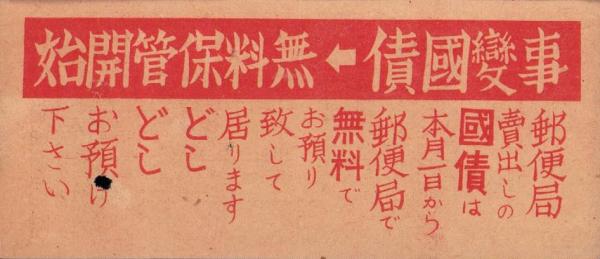 事變國債←無料保管開始
郵便局
賣出しの
國債は
本月一日から
郵便局で
無料で
お預り
致して
居ります
どし
どし
お預け
下さい